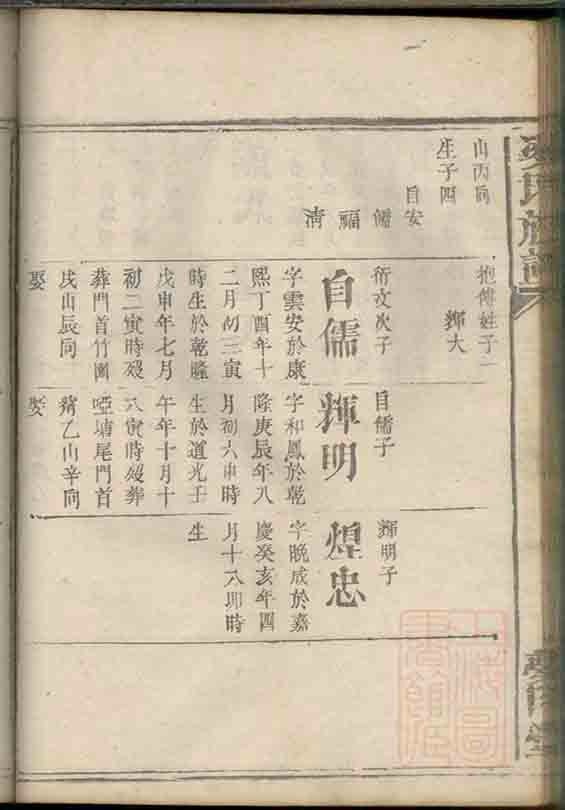 山丙向
生子四
自安
儒
福
清
抱傳姓子一
輝大
衍文次子
自儒
字雲安於康
熙丁酉年十
二月初三寅
時生於乾隆
戊申年七月
初二寅時歿
葬門首竹園
戌山辰向
娶
自儒子
輝明
字和鳳於乾
隆庚辰年八
月初六申時
生於道光壬
午年十月十
八寅時歿葬
啞塘尾門首
乙山辛向
娶
輝明子
煌忠
字晚成於嘉
慶癸亥年四
月十八卯時
生
氏族譜
上海圖
書館藏